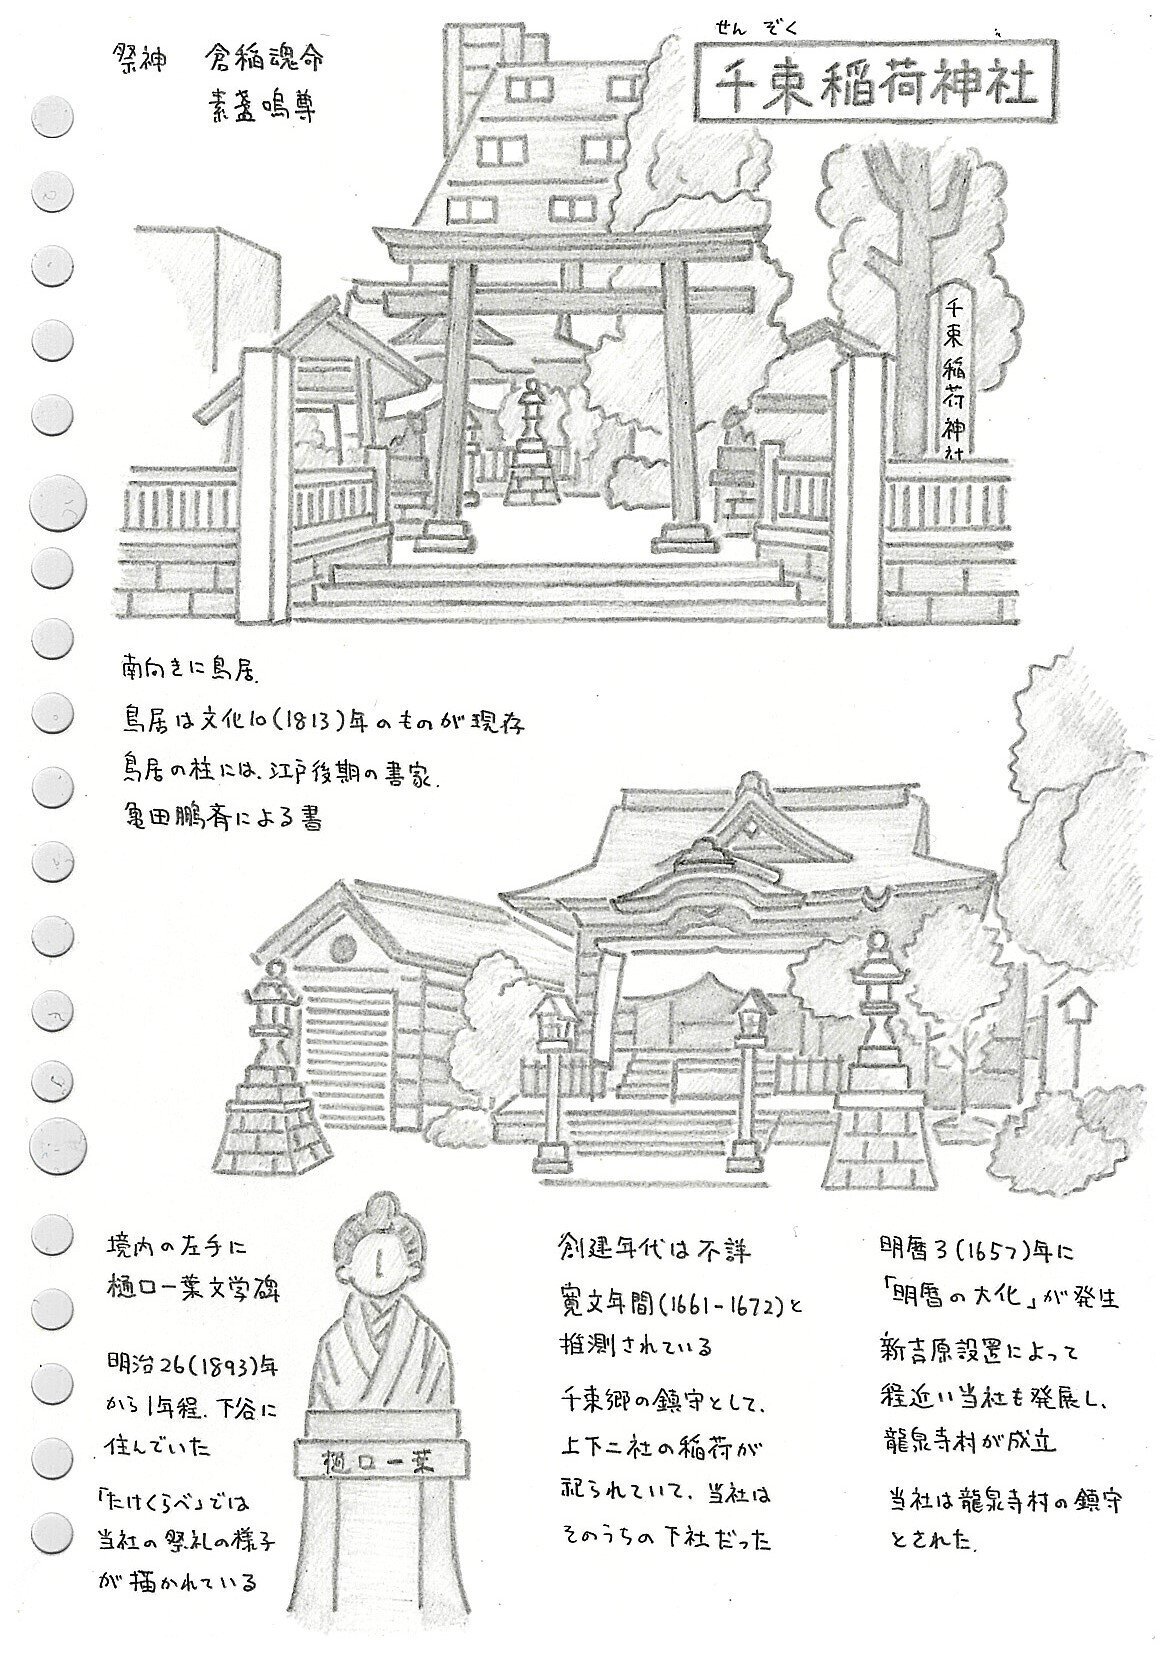 祭神　倉稲魂命
素盞嗚尊
せんぞく
千束稲荷神社
千束稲荷神社
南向きに鳥居.
鳥居は文化10(1813)年のものが現存
鳥居の柱には、江戸後期の書家.
亀田鵬斉による書
境内の左手に
樋口一葉文学碑
明治26(1893)年
から1年程、下谷に
住んでいた
「たけくらべ」では
当社の祭礼の様子
が描かれている
樋口一葉
創建年代は不詳
寛文年間(1661-1672)と
推測されている
千束郷の鎮守として、
上下二社の稲荷が
祀られていて、当社は
そのうちの下社だった
明暦3(1657)年に
「明暦の大化」が発生
新吉原設置によって
程近い当社も発展し、
龍泉寺村が成立
当社は龍泉寺村の鎮守
とされた.